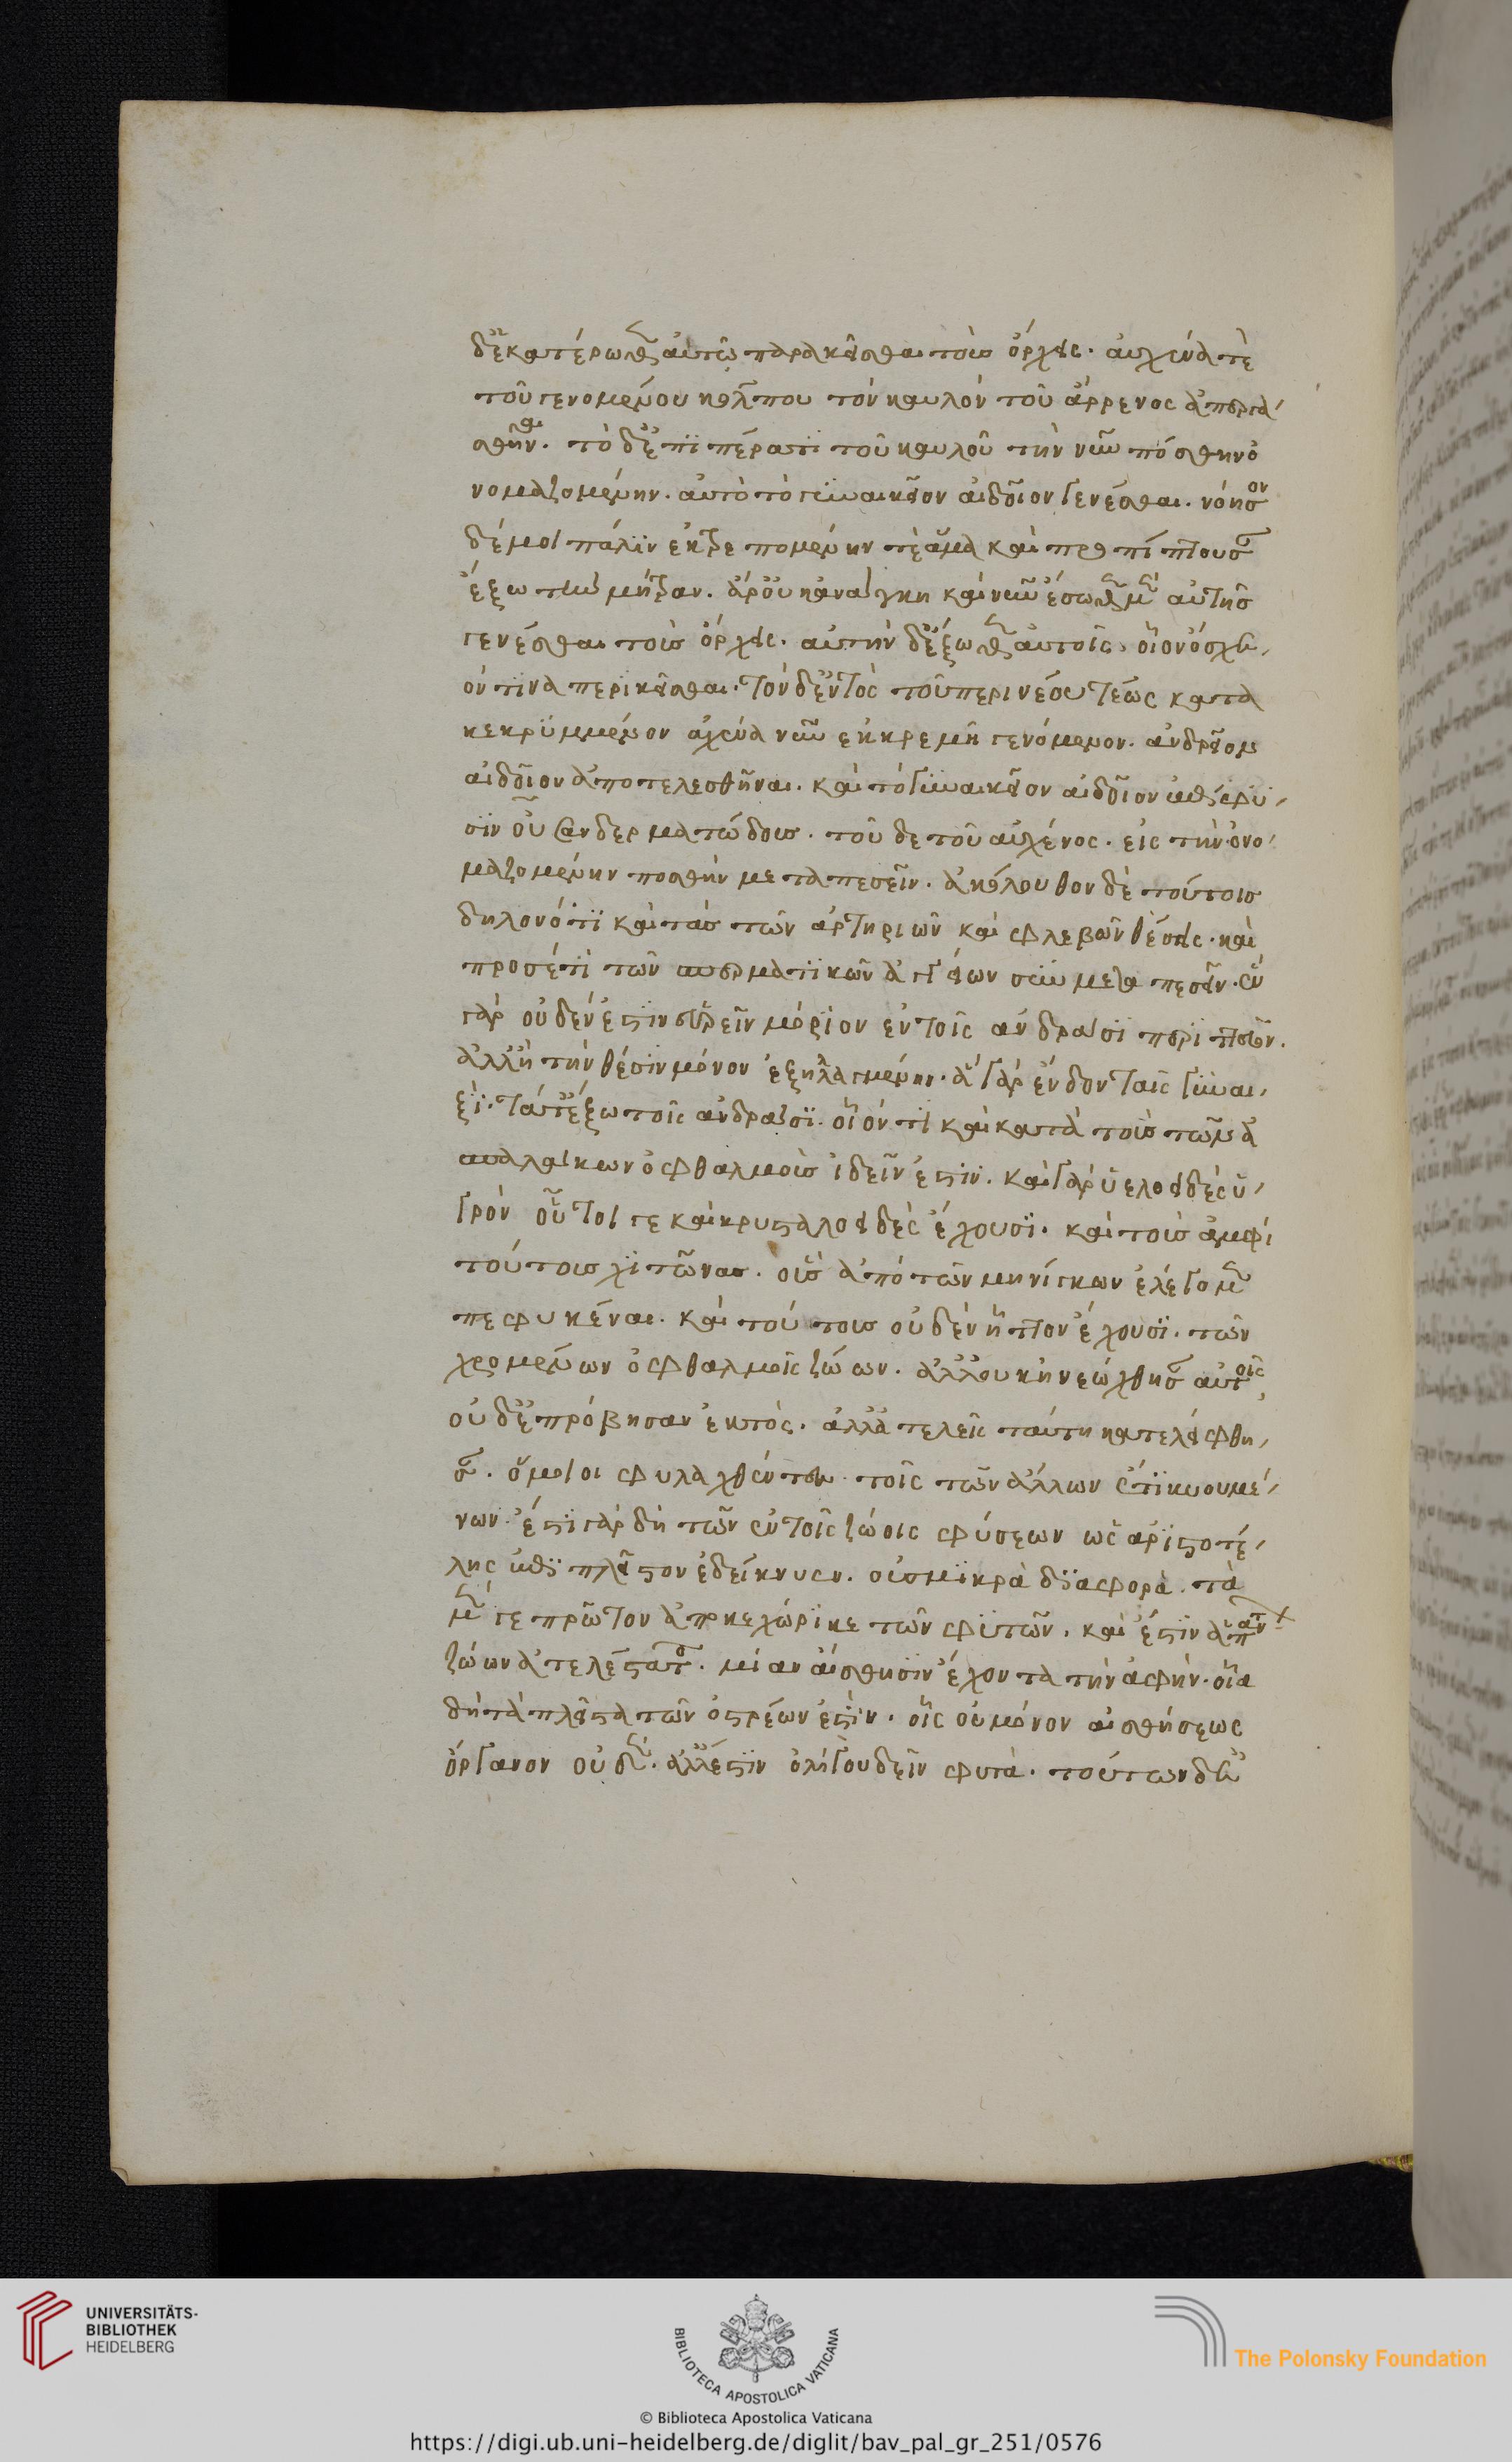 δ' ἑκατέρωθεν αὐτῷ παρακεῖσθαι τοὺς ὄρχεις. αὐχένα τὲ
τοῦ γενομένου κόλπου τὸν καυλὸν τοῦ ἄρρενος ἀπεργα-
σθῆναι. τὸ δ' ἐπὶ πέρατι τοῦ καυλοῦ τὴν νῦν πόσθην ὀ
νομαζομένην. αὐτὸ τὸ γυναικεῖον αἰδοῖον γενέσθαι. νόησον
δέ μοι πάλιν ἐκτρεπομένην τὲ ἅμα καὶ προπίπτουσαν
ἔξω τὴν μήτραν. ἆρ' οὐκ ἀναγκη καὶ νῦν ἔσωθεν μὲν αὐτῆς
γενέσθαι τοὺς ὄρχεις. αὐτὴν δ' ἔξωθεν αὐτοῖς οἷον ὄσχε-
όν τινα περικεῖσθαι. τὸν δ' ἐντὸς τοῦ περινέου τέως κατα
κεκρυμμένον αὐχένα νῦν ἐκκρεμῆ γενόμενον. ἀνδρεῖον
αἰδοῖον ἀποτελεσθῆναι. καὶ τὸ γυναικεῖον αἰδοῖον
οὖσαν δερματώδους. τοῦ δε τοῦ αὐχένος. εἰς τὴν ὀνο-
μαζομένην ποσθὴν μεταπεσεῖν. ἀκόλουθον δὲ τούτοις
δηλονότι καὶ τὰς τῶν ἀρτηριῶν καὶ φλεβῶν θέσεις. καὶ
προσέτι τῶν σπερματικῶν ἀγγείων συμμεταπεσεῖν. οὐ
γὰρ οὐδέν ἐστιν εὑρεῖν μόριον ἐν τοῖς ἀνδράσι περιττὸν.
ἀλλ' ἢ τὴν θέσιν μόνον ἐξηλλαγμένην. ἃ γὰρ ἔνδον ταῖς γυναι-
ξὶ. ταῦτ' ἔξω τοῖς ἀνδράσι. οἷόν τι καὶ κατὰ τοὺς τῶν ἀ
σπαλάκων ὀφθαλμοὺς ἰδεῖν ἔστιν. καὶ γὰρ ὑελοειδὲς ὑ-
γρὸν οὗτοί τε καὶ κρυσταλοειδὲς ἔχουσι. καὶ τοὺς ἀμφὶ
τούτοις χιτῶνας. οὓς ἀπὸ τῶν μηνίγκων ἐλέγομεν
πεφυκέναι. καὶ τούτους οὐδὲν ἧττον ἔχουσι. τῶν
χρομένων ὀφθαλμοῖς ζώων. ἀλλ' οὐκ ἀνεώχθησαν αὐτοῖς
οὐδὲ πρόβησαν ἐκτὸς. ἀλλ' ἀτελεῖς ταύτη κατελείφθη-
σαν. ὅμοιοι φυλαχθέντες τοῖς τῶν ἄλλων ἔτι κυουμέ-
νων. ἔστι γὰρ δὴ τῶν ἐν τοῖς ζώοις φύσεων ὡς ἀριστοτέ-
λης ἐπὶ πλεῖστον ἐδείκνυεν. οὐ σμικρὰ διαφορὰ. τὰ
μέν γε πρῶτον ἀποκεχώρικε τῶν φυτῶν. καὶ ἔστιν ἁπάντων
ζώων ἀτελέστατα. μίαν αἴσθησιν ἔχοντα τὴν ἁφὴν. οἷα
δὴ τὰ πλεῖστα τῶν ὀστρέων ἐστὶν. οἷς οὐ μόνον αἰσθήσεως
ὄργανον οὐδὲν. ἀλλ' ἔστιν ὀλίγου δεῖν φυτὰ. τούτων δὲ
UNIVERSITÄTS-
BIBLIOTHEK
HEIDELBERG
BIBLIOTECA APOSTOLICA VATICANA
The Polonsky Foundation
© Biblioteca Apostolica Vaticana
https://digi.ub.uni-heidelberg.de/diglit/bav_pal_gr_251/0576